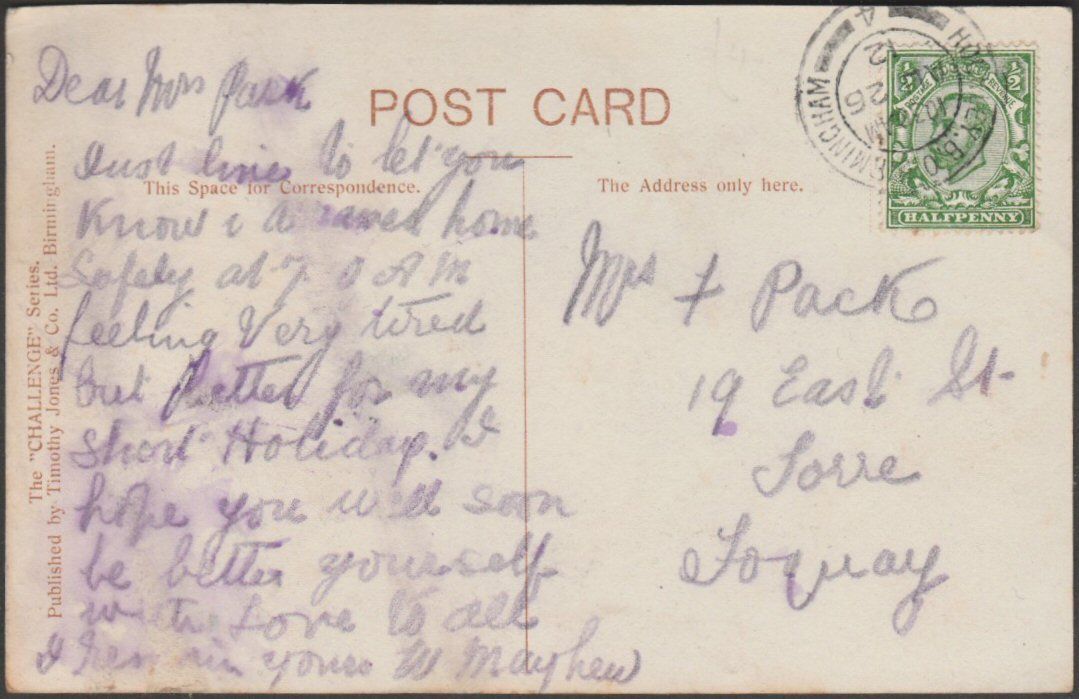 POST CARD
This Space for Correspondence.
The Address only here.
Dear Mrs Pack
Just line to let you
Know i arived home
Safely at 7. 0 AM
feeling Very tired
but better for my
Short Holiday. I
hope you will soon
be better yourself
with Love to all
I remain yours W Mayhew
Mrs + Pack
19 East St
Torre
Toquay
HOCKLEY. B.O
BIRMINGHAM
10 AM
26
12
4
1/2
POSTAGE REVENUE
1/2
HALFPENNY
The "CHALLENGE" Series.
Published by Timothy Jones & Co. Ltd. Birmingham.